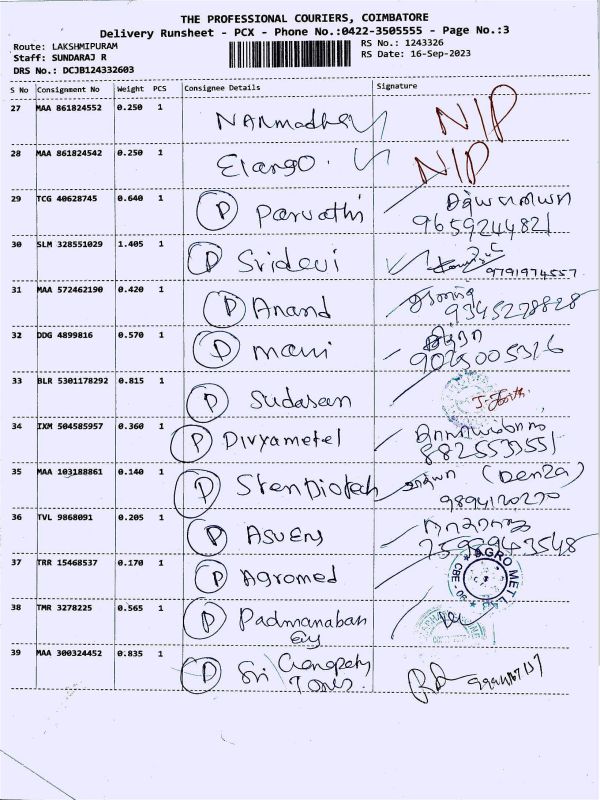 THE PROFESSIONAL COURIERS, COIMBATORE
Delivery Runsheet - PCX - Phone No.:0422-3505555 - Page No.:3
Route: LAKSHMIPURAM RS No.: 1243326
Staff: SUNDARAJ R RS Date: 16-Sep-2023
DRS No.: DCJB124332603
S No Consignment No Weight PCS Consignee Details Signature
27 MAA 861824552 0.250 1 NARmadha N/P
28 MAA 861824542 0.250 1 Elango. N/P
29 TCG 40628745 0.640 1 P Parvathi
9659244821
30 SLM 328551029 1.405 1 P Sridevi
9791974557
31 MAA 572462190 0.420 1 P Anand
9345278828
32 DDG 4899816 0.570 1 P mani
9025005326
33 BLR 5301178292 0.815 1 P Sudasan
34 IXM 504585957 0.360 1 P Divyametel
8825533551
35 MAA 103188861 0.140 1 P Stenbiotech (Denza)
9894120270
36 TVL 9868091 0.205 1 P Asvens
37 TRR 15468537 0.170 1 P Agromed AGRO MET
CBE - 30
38 TMR 3278225 0.565 1 P Padmanaban
39 MAA 300324452 0.835 1 P Sri Ganapathy